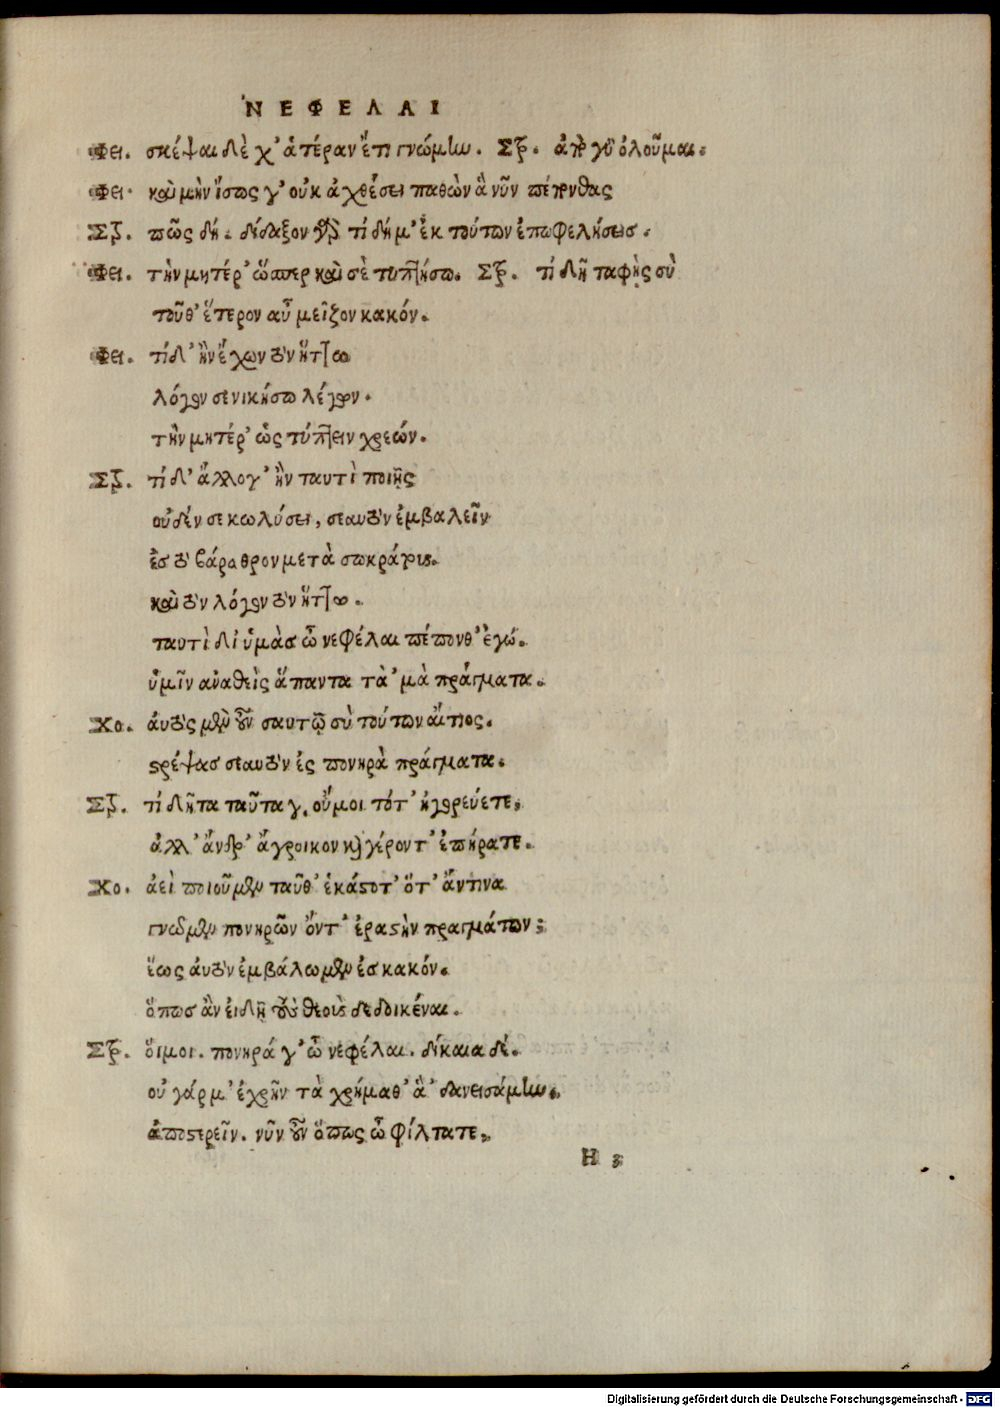 ΝΕΦΕΛΑΙ
Φει. σκέψαι δὲ χ' ἁτέραν ἔτι γνώμην. Στρ. ἀπὸ γὰρ ὀλοῦμαι.
Φει. καὶ μὴν ἴσως γ' οὐκ ἀχθέσει παθὼν ἃ νῦν πέπονθας
Στρ. πῶς δή. δίδαξον γὰρ τί δή μ' ἐκ τούτων ἐπωφελήσεις.
Φει. τὴν μητέρ' ὥσπερ καὶ σὲ τυπτήσω. Στρ. τί δῆτα φῂς σὺ
τοῦθ' ἕτερον αὖ μεῖζον κακόν.
Φει. τί δ' ἢν ἔχων τὸν ἥττω
λόγον σε νικήσω λέγων.
τὴν μητέρ' ὡς τύπτειν χρεών.
Στρ. τί δ' ἄλλο γ' ἢν ταυτὶ ποιῇς
οὐδέν σε κωλύσει, σεαυτὸν ἐμβαλεῖν
ἐσ τὸ βάραθρον μετὰ σωκράτους.
καὶ τὸν λόγον τὸν ἥττω.
ταυτὶ δι ὑμὰσ ὦ νεφέλαι πέπονθ' ἐγώ.
ὑμῖν αναθεὶς ἅπαντα τὰ' μὰ πράγματα.
Χο. ἀυτὸς μὲν οὖν σαυτῷ σὺ τούτων αἴτιος.
στρέψασ σεαυτὸν ἐς πονηρὰ πράγματα.
Στρ. τί δῆτα ταῦτα γ, οὔμοι τότ' ἠγορεύετε;
ἀλλ' ἄνδρ' ἄγροικον καὶ γέροντ' ἐπήρατε.
Χο. ἀεὶ ποιοῦμεν ταῦθ' ἑκάστοτ' ὅτ' ἄντινα
γνῶμεν πονηρῶν ὄντ' ἐραστὴν πραγμάτων;
ἕως ἀυτὸν ἐμβάλωμεν ἐσ κακόν.
ὅπωσ ἂν ἐιδῇ τοὺς θεοὺς δεδοικέναι.
Στρ. ὄιμοι. πονηρά γ' ὦ νεφέλαι. δίκαια δέ.
οὐ γάρ μ' ἐχρῆν τὰ χρήμαθ' ἃ' δανεισάμην.
ἀποστερεῖν. νῦν οὖν ὅπως ὦ φίλτατε,
Η 3
Digitalisierung gefördert durch die Deutsche Forschungsgemeinschaft - DFG